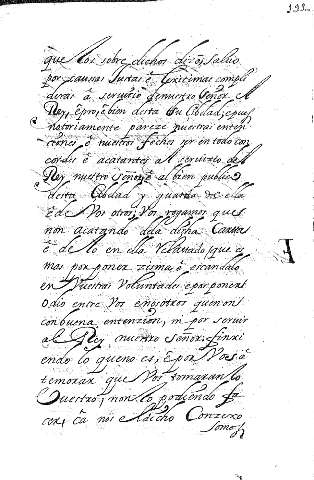 199
que Nos sobre dichos diz.os salio
por caussas Justas é lexitimas compli
deras á serviçio de nuestro Señor el
Rey, é pro, é bien desta su Ciudad, é pues
notoriamente pareze nuestras enten
ciones é nuestros fechos ser en todo con
cordes é acatantes al serviçio del
Rey nuestro Señor é al bien publico
desta Ciudad y guarda de ella
é de Vos otros, Vos rogamos que
non acatando á la dicha Carta
é de lo en ella relatado, que es
mas por poner zisma, é escandalo
en Vuestras Voluntades é por poner
odio entre Vos é nosotros que non
con buena entenzion, ni por servir
al Rey nuestro Señor, finxi
endo lo que no es, é por Vos á
temorar que Vos tomaran lo
Vuestro, non lo podiendo fa
cer, cá nos el dicho Conzexo
somos